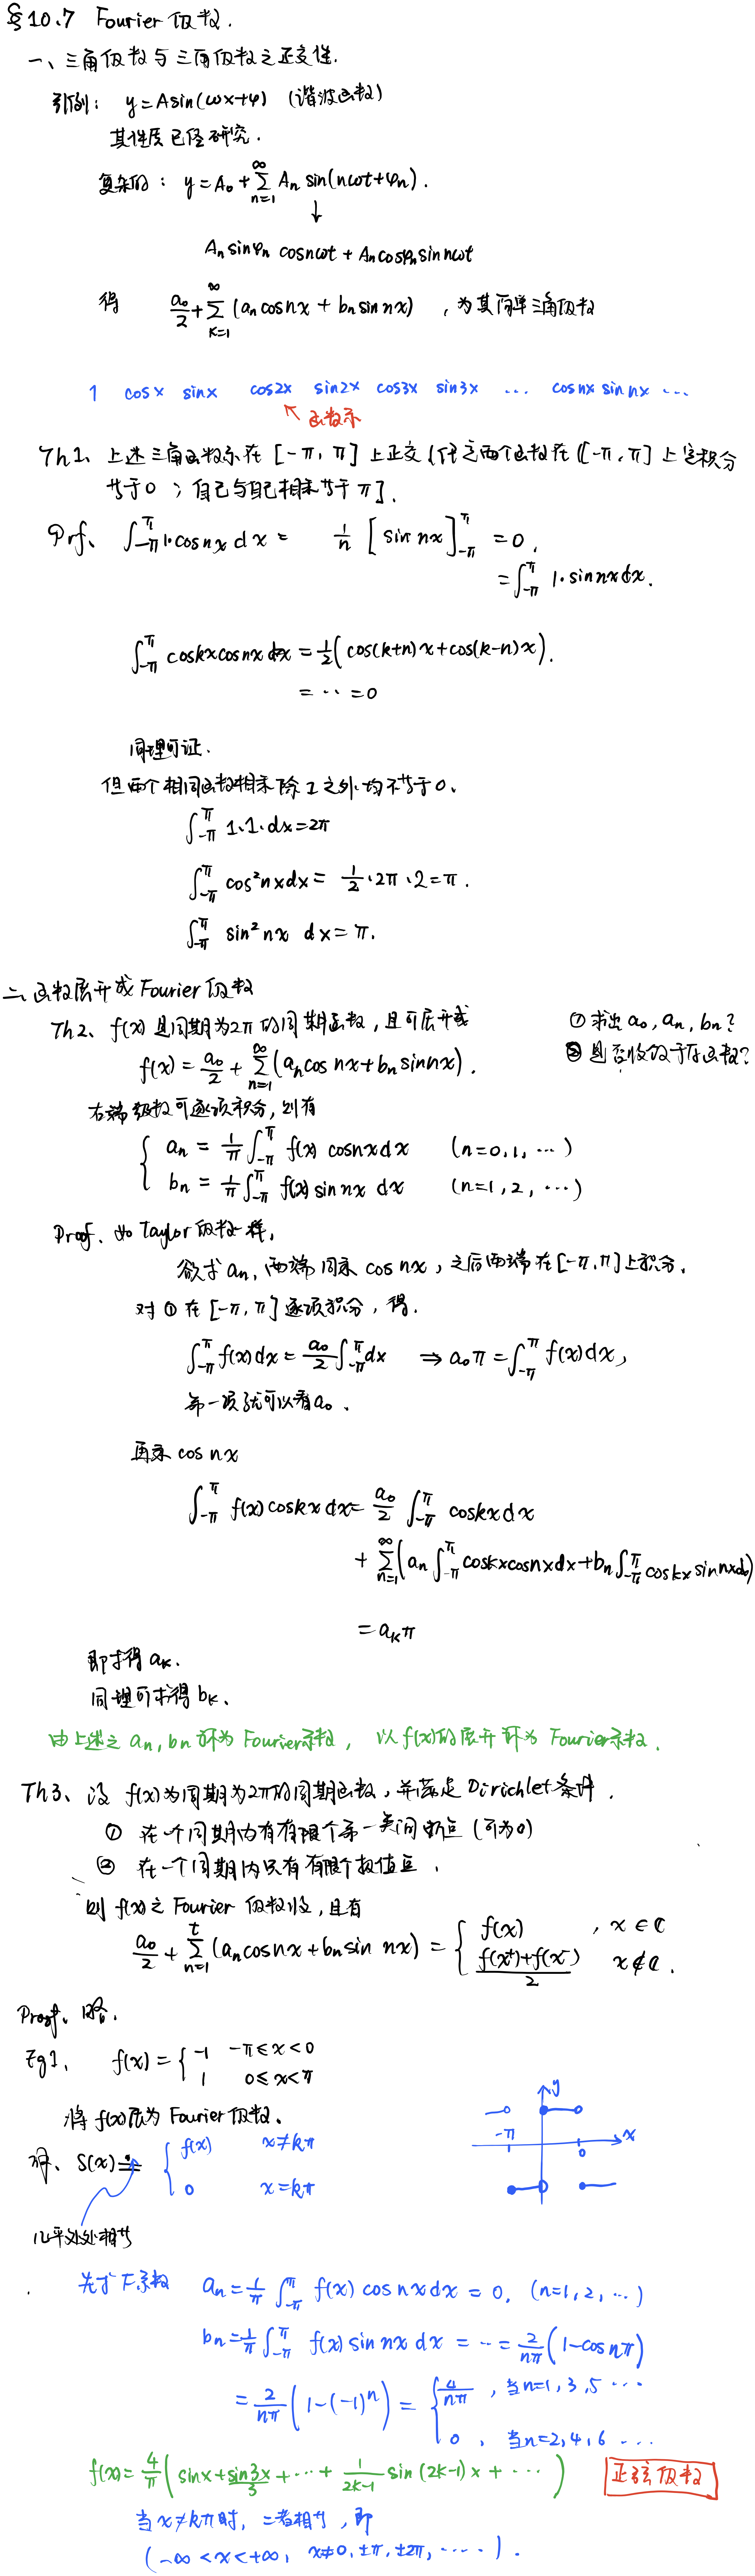 §10.7 Fourier 级数.
一、三角级数与三角级数之正交性.
引例: y=Asin(ωx+φ) (谐波函数)
其性质已经研究.
复杂的: y=A₀+∑_{n=1}^{∞} Aₙ sin(nωt+φₙ).
↓
Aₙ sinφₙ cosnωt + Aₙcosφₙ sinnωt
得 a₀/2+∑_{K=1}^{∞}(aₙcosnx + bₙsinnx) ,为其简单三角级数
1 cosx sinx cos2x sin2x cos3x sin3x ... cosnx sinnx ...
函数系
Th1、上述三角函数系在[-π,π]上正交(任意两个函数在([-π,π]上定积分
等于0;自己与自己相乘等于π].
Prf、 ∫_{-π}^{π} 1·cosnx dx = 1/n [sin nx]_{-π}^{π} =0,
=∫_{-π}^{π} 1·sinnxdx.
∫_{-π}^{π} coskxcosnx dx = 1/2(cos(k+n)x+cos(k-n)x).
= ... =0
同理可证.
但两个相同函数相乘除1之外均不等于0.
∫_{-π}^{π} 1·1·dx=2π
∫_{-π}^{π} cos²nxdx= 1/2·2π·2=π.
∫_{-π}^{π} sin²nx dx=π.
二、函数展开成Fourier级数
Th2、f(x)是周期为2π的周期函数,且可展开成
① 求出a₀,aₙ,bₙ?
f(x)=a₀/2+∑_{n=1}^{∞}(aₙcos nx+bₙsinnx).
② 是否收敛于原函数?
右端级数可逐项积分,则有
{ aₙ = 1/π ∫_{-π}^{π} f(x) cosnxdx (n=0,1,...)
bₙ = 1/π ∫_{-π}^{π} f(x)sinnx dx (n=1,2,...)
Proof、如Taylor级数一样,
欲求aₙ,两端同乘cos nx,之后两端在[-π,π]上积分.
对①在[-π,π]逐项积分,得.
∫_{-π}^{π} f(x)dx= a₀/2 ∫_{-π}^{π} dx ⇒ a₀π=∫_{-π}^{π} f(x)dx,
第一项就可以看a₀.
再乘 cos nx
∫_{-π}^{π} f(x)coskx dx= a₀/2 ∫_{-π}^{π} coskxdx
+ ∑_{n=1}^{∞}(aₙ∫_{-π}^{π} coskxcosnxdx+bₙ∫_{-π}^{π} coskx sinnxdx)
= a_Kπ
即求得 a_K.
同理可求得 b_K.
由上述之aₙ,bₙ称为Fourier系数, 以f(x)的展开称为Fourier系数.
Th3、设 f(x)为周期为2π的周期函数,并满足Dirichlet条件.
① 在一个周期内有有限个第一类间断点(可为0)
② 在一个周期内只有有限个极值点,
则f(x)之Fourier级数收,且有
a₀/2+∑_{n=1}^{t}(aₙcosnx+bₙsin nx) = { f(x) , x∈C
(f(x⁺)+f(x⁻))/2 x∉C.
Proof、略.
Eg1、 f(x)={ -1 -π≤x<0
1 0≤x<π
将f(x)展为Fourier级数.
y
-π 0 x
解、S(x)≐ { f(x) x≠kπ
0 x=kπ
几乎处处相等
先求F系数 aₙ=1/π ∫_{-π}^{π} f(x) cosnxdx = 0, (n=1,2,...)
bₙ=1/π ∫_{-π}^{π} f(x)sinnx dx = ... = 2/nπ(1-cosnπ)
= 2/nπ(1-(-1)ⁿ) = { 4/nπ , 当n=1,3,5...
0 , 当n=2,4,6...
f(x)= 4/π(sinx+sin3x/3+...+1/(2k-1) sin(2k-1)x+...) 正弦级数
当x≠kπ时, 二者相等,即
(-∞<x<+∞, x≠0,±π,±2π,.....).